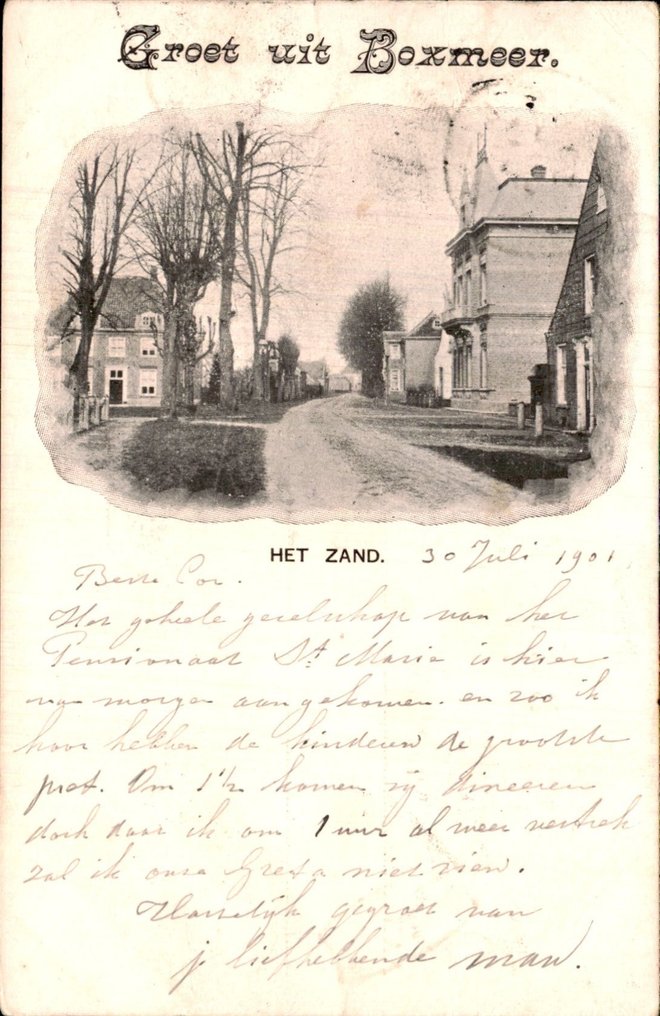 Groet uit Boxmeer.
HET ZAND. 30 Juli 1901
Beste Cor.
Het geheele gezelschap van het
Pensionaat St Marie is hier
van morgen aangekomen. en zoo ik
hoor hebben de kinderen de grootste
pret. Om 1½ komen zij dineeren
doch daar ik om 1 uur al weer vertrek
zal ik onze Greta niet zien.
Hartelijk gegroet van
je liefhebbende man.